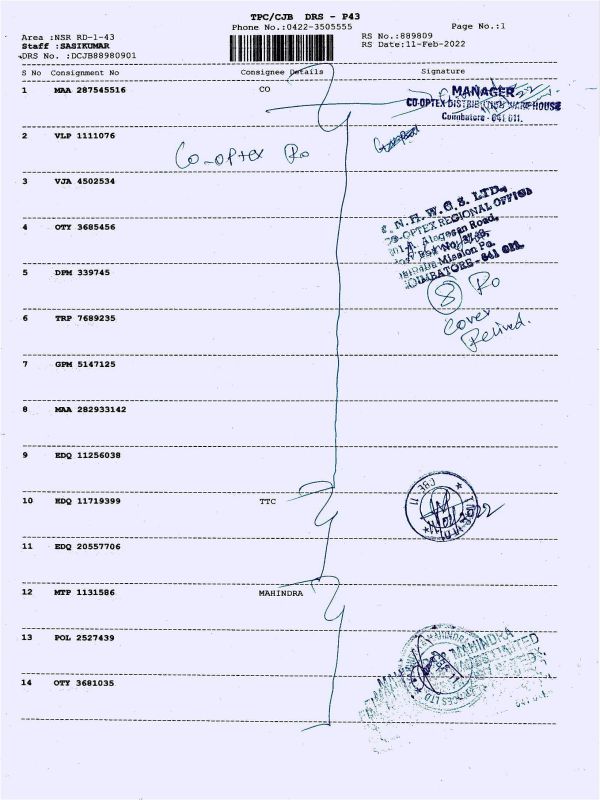 TPC/CJB DRS - P43
Phone No.:0422-3505555
Page No.:1
Area :NSR RD-1-43
RS No.:889809
Staff :SASIKUMAR
RS Date:11-Feb-2022
DRS No. :DCJB88980901
S No Consignment No Consignee Details Signature
1 MAA 287545516 CO
MANAGER
CO-OPTEX DISTRIBUTION WAREHOUSE
Coimbatore - 641 011.
2 VLP 1111076
Co-optex Ro
3 VJA 4502534
T. N. H. W. C. S. LTD.,
CO-OPTEX REGIONAL OFFICE
Alagesan Road,
Saibaba Mission Po.
COIMBATORE - 641 011.
4 OTY 3685456
5 DPM 339745
8 Ro
6 TRP 7689235
Cover
Relived.
7 GPM 5147125
8 MAA 282933142
9 EDQ 11256038
10 EDQ 11719399 TTC
CBE - 11
11 EDQ 20557706
12 MTP 1131586 MAHINDRA
13 POL 2527439
MAHINDRA
LIMITED
14 OTY 3681035